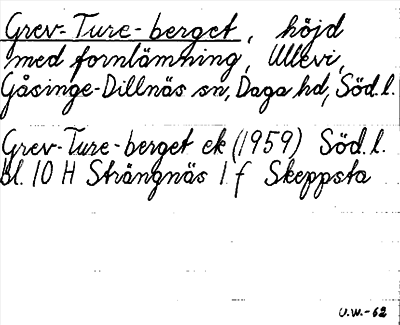 Grev-Ture-berget, höjd
med fornlämning, Ullevi,
Gåsinge-Dillnäs sn, Daga hd, Söd.l.
Grev-Ture-berget ek (1959) Söd.l.
bl. 10 H Strängnäs 1 f Skeppsta
U.W.-62